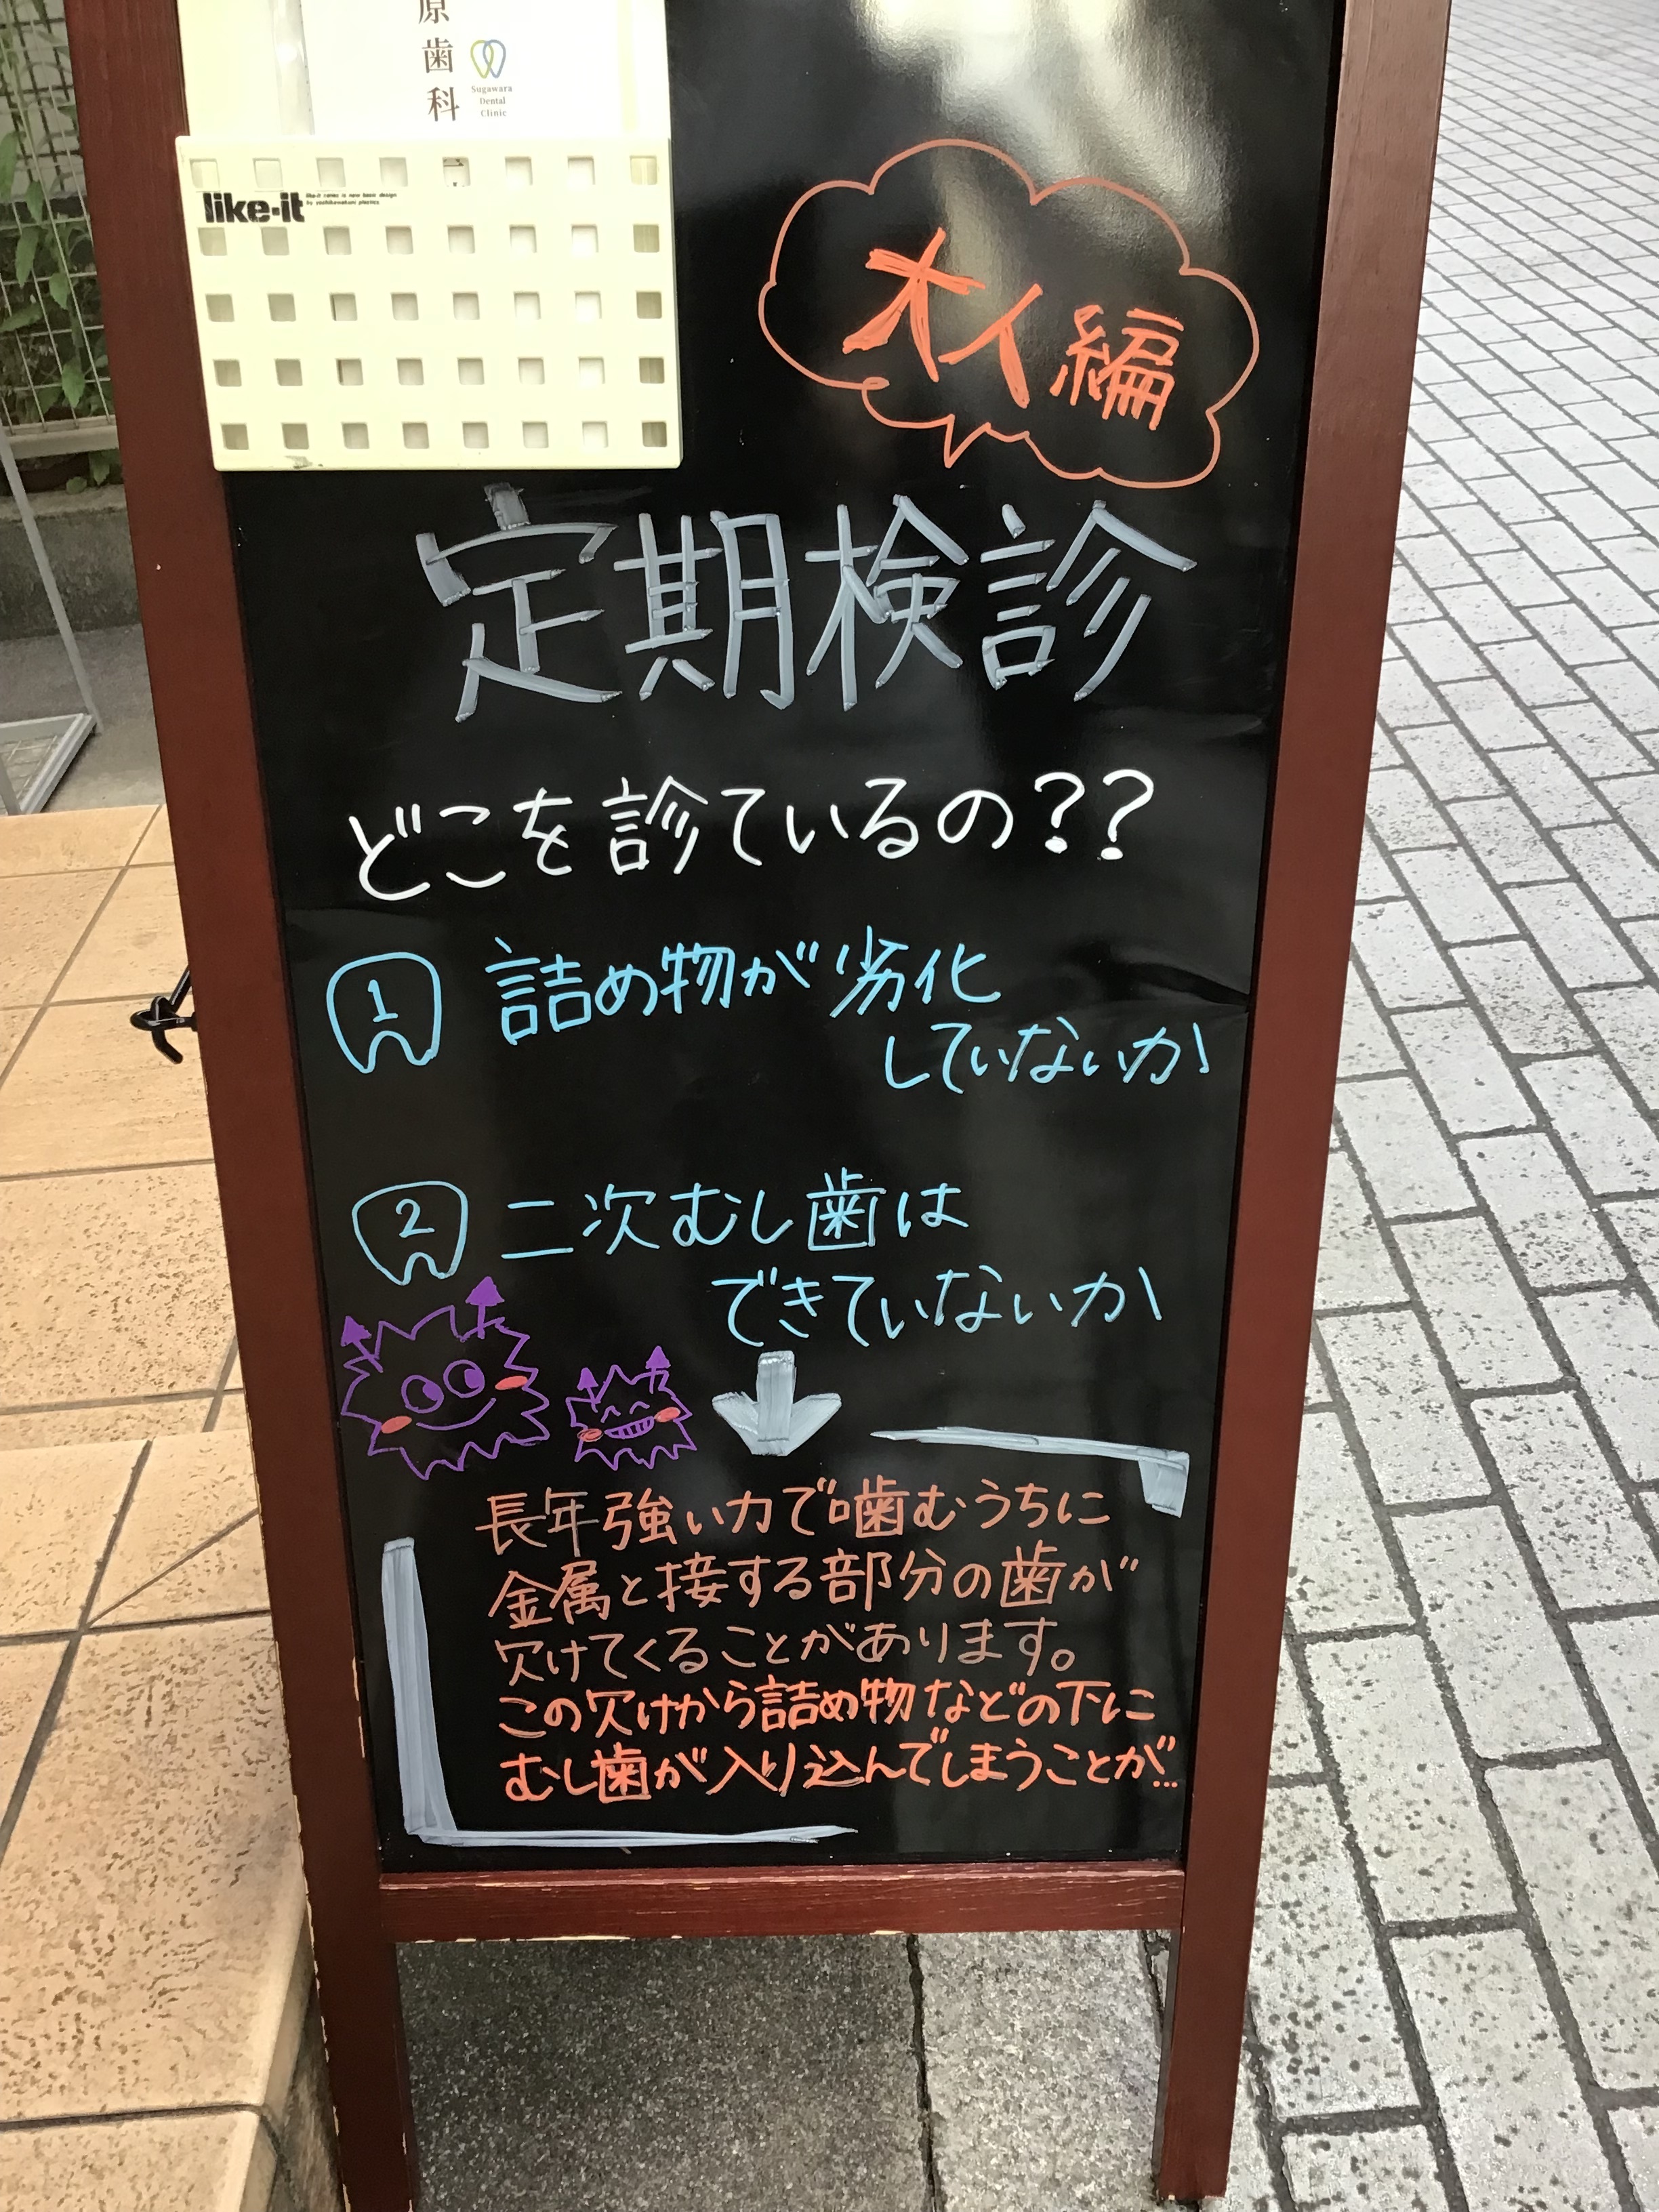 原歯科
Sugawara
Dental
Clinic
like-it
大人編
定期検診
どこを診ているの??
1 詰め物が劣化
していないか
2 二次むし歯は
できていないか
長年強い力で噛むうちに
金属と接する部分の歯が
欠けてくることがあります。
この欠けから詰め物などの下に
むし歯が入り込んでしまうことが…